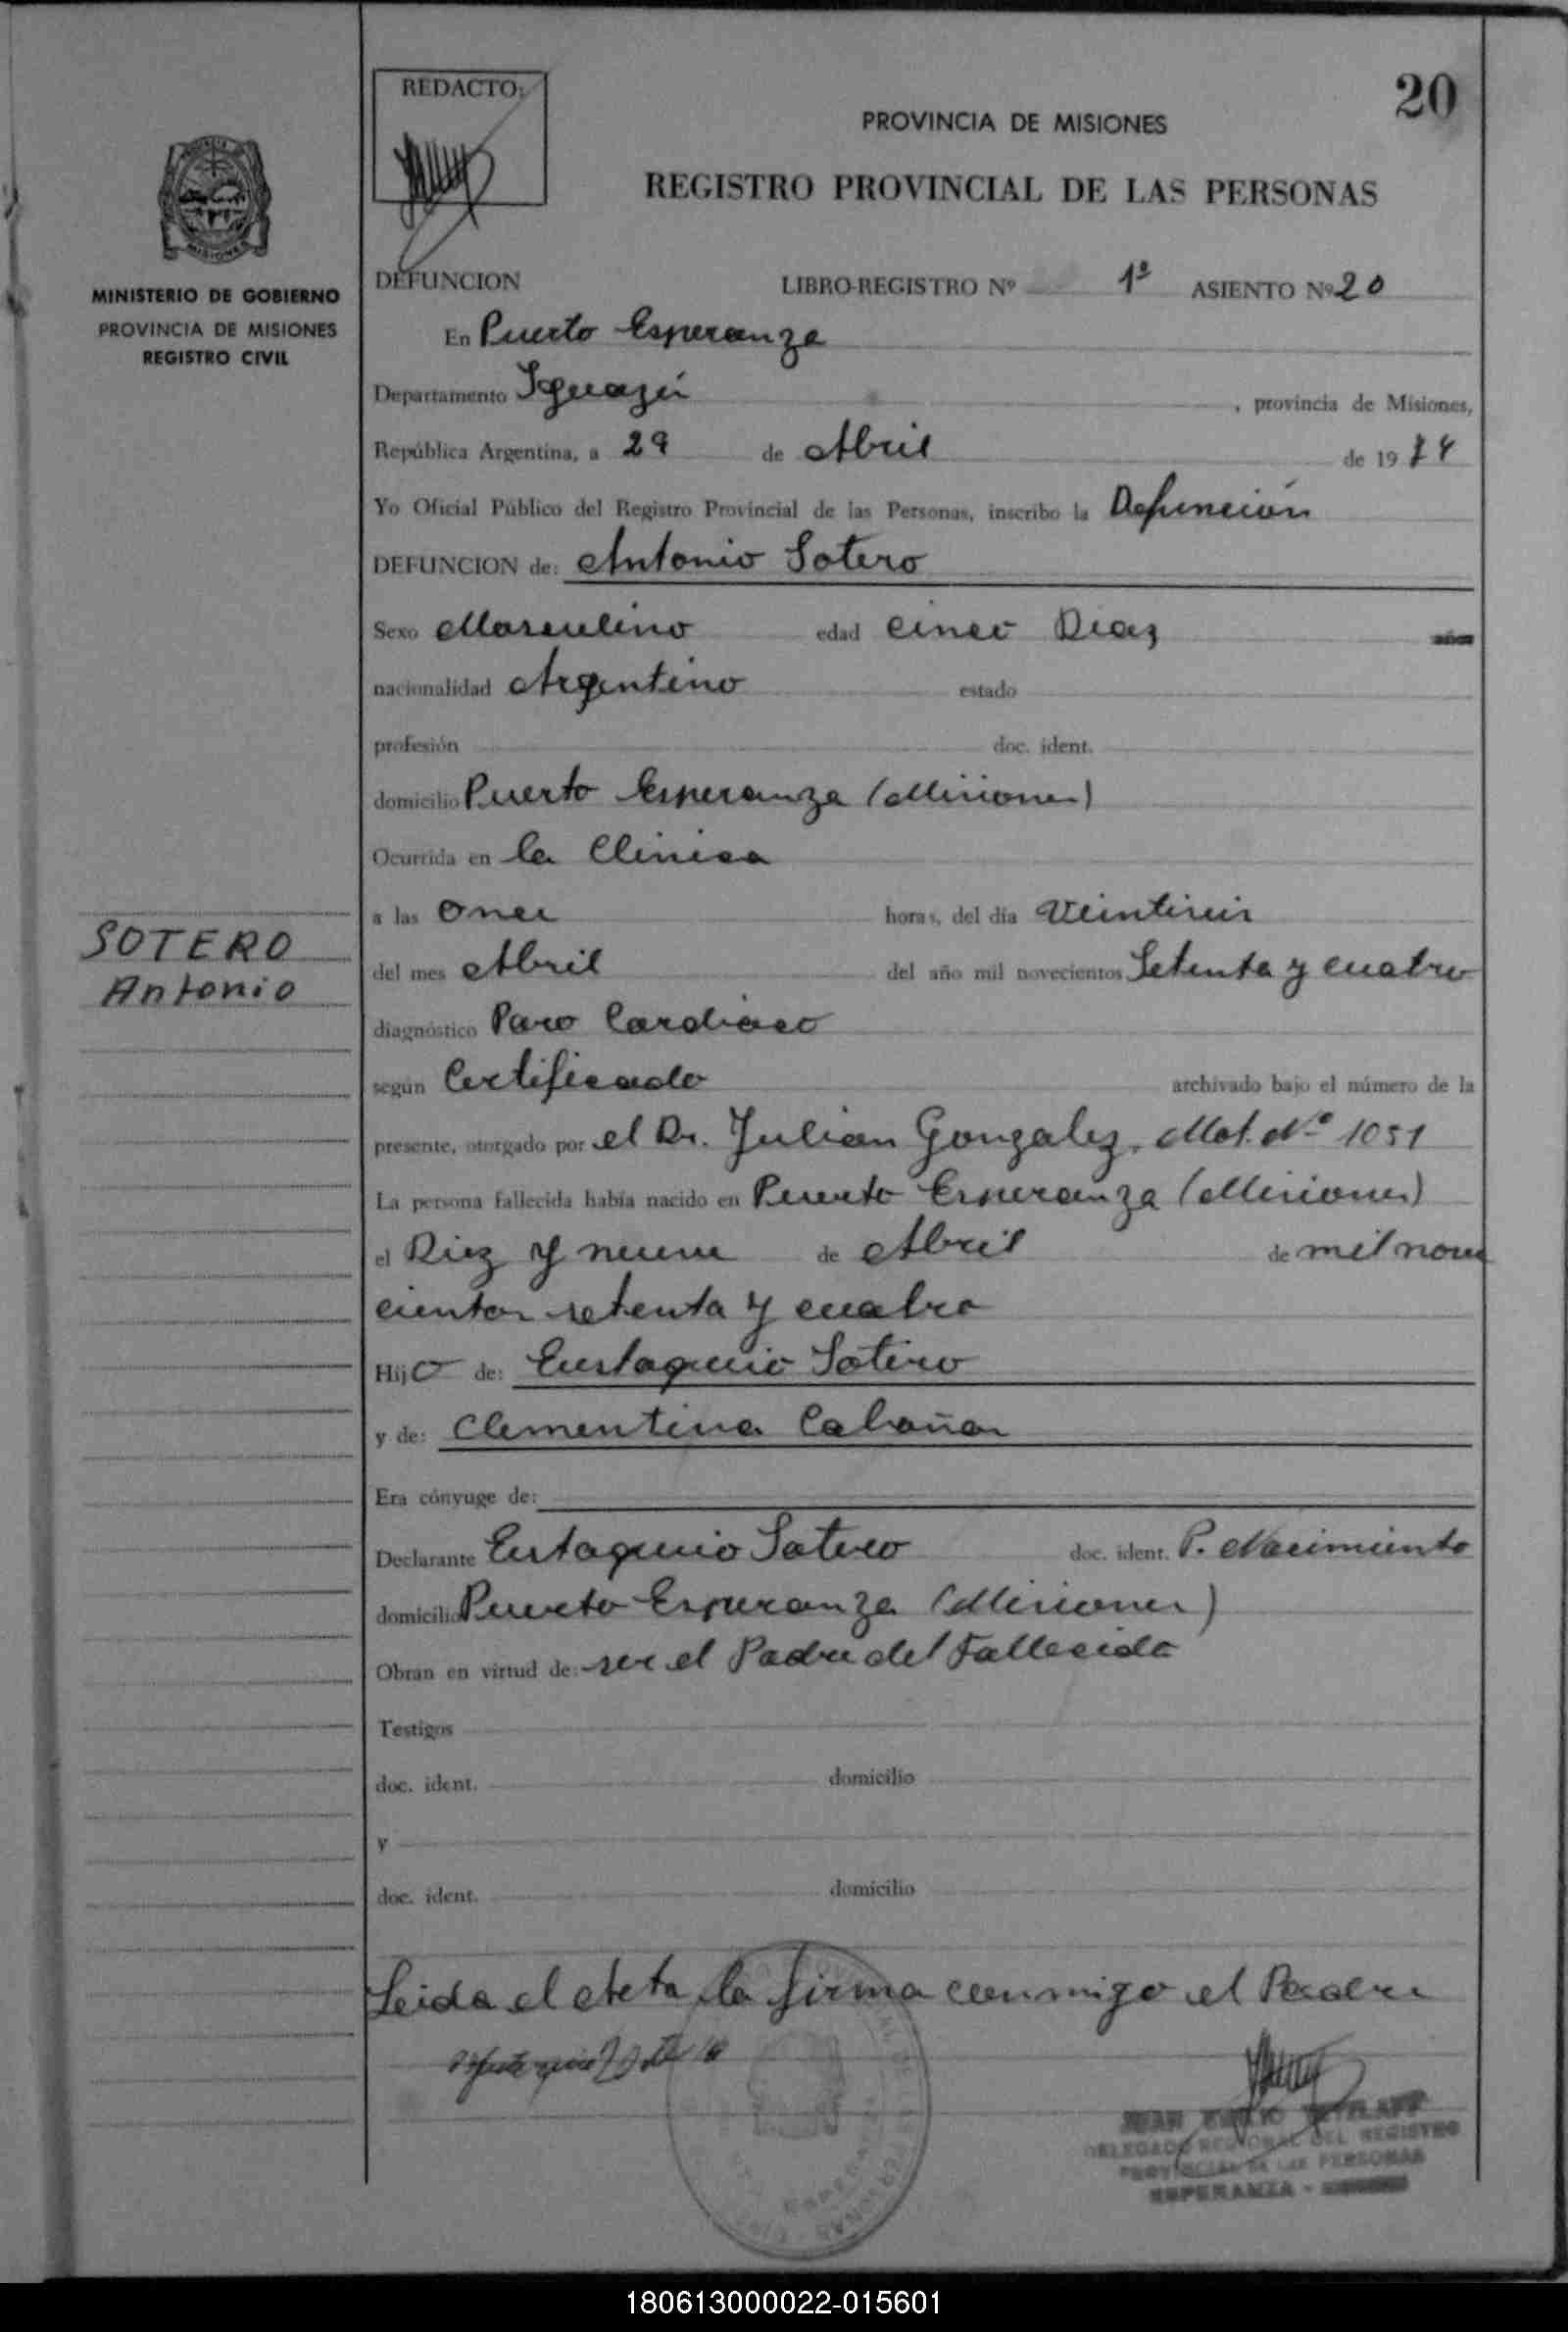 20
REDACTO:
PROVINCIA DE MISIONES
REGISTRO PROVINCIAL DE LAS PERSONAS
MISIONES
MINISTERIO DE GOBIERNO
PROVINCIA DE MISIONES
REGISTRO CIVIL
DEFUNCION LIBRO-REGISTRO Nº 1º ASIENTO Nº 20
En Puerto Esperanza
Departamento Iguazú , provincia de Misiones,
República Argentina, a 29 de Abril de 19 74
Yo Oficial Público del Registro Provincial de las Personas, inscribo la Defunción
DEFUNCION de: Antonio Sotero
Sexo Masculino edad cinco Diaz años
nacionalidad Argentino estado
profesión doc. ident.
domicilio Puerto Esperanza (Misiones)
Ocurrida en la Clinica
SOTERO
Antonio
a las once horas, del día Veintiseis
del mes Abril del año mil novecientos Setenta y cuatro
diagnóstico Paro Cardiaco
según Certificado archivado bajo el número de la
presente, otorgado por el Dr. Julian Gonzalez. Mat. Nº 1051
La persona fallecida había nacido en Puerto Esperanza (Misiones)
el Diez y nueve de Abril de mil nove
cientos setenta y cuatro
Hijo de: Eustaquio Sotero
y de: Clementina Cabañas
Era cónyuge de:
Declarante Eustaquio Sotero doc. ident. P. Nacimiento
domicilio Puerto Esperanza (Misiones)
Obran en virtud de: ser el Padre del Fallecido
Testigos
doc. ident. domicilio
y
doc. ident. domicilio
Leida el Acta la firma conmigo el Padre
JUAN EMILIO
DELEGADO REGIONAL DEL REGISTRO
PROVINCIAL DE LAS PERSONAS
ESPERANZA -
180613000022-015601